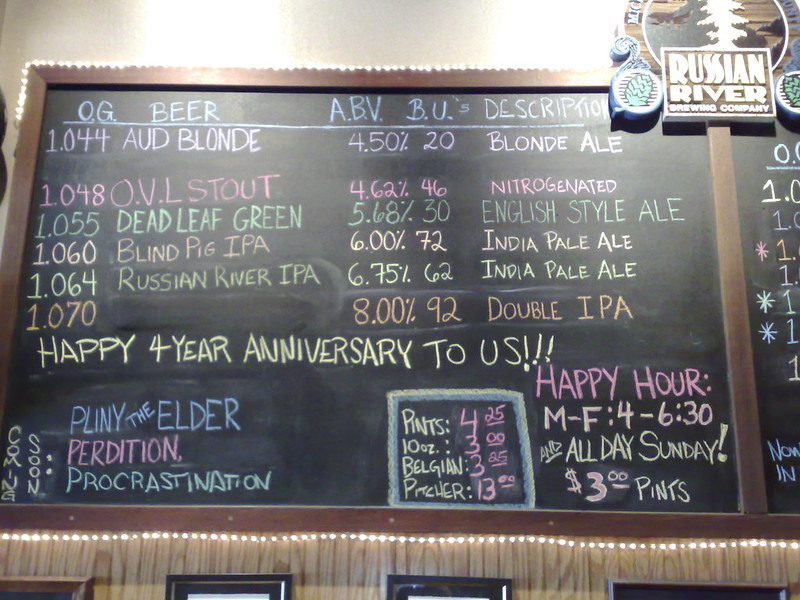 RUSSIAN
RIVER
BREWING COMPANY
O.G. BEER A.B.V. B.U.'s DESCRIPTION
1.044 AUD BLONDE 4.50% 20 BLONDE ALE
1.048 O.V.L STOUT 4.62% 46 NITROGENATED
1.055 DEAD LEAF GREEN 5.68% 30 ENGLISH STYLE ALE
1.060 BLIND PIG IPA 6.00% 72 INDIA PALE ALE
1.064 RUSSIAN RIVER IPA 6.75% 62 INDIA PALE ALE
1.070 8.00% 92 DOUBLE IPA
HAPPY 4 YEAR ANNIVERSARY TO US!!!
COMING SOON:
PLINY THE ELDER
PERDITION,
PROCRASTINATION
PINTS: 4 25
10oz.: 3 00
BELGIAN: 3 25
PITCHER: 13 00
HAPPY HOUR:
M-F: 4-6:30
AND ALL DAY SUNDAY!
$3 00 PINTS
NOW
IN